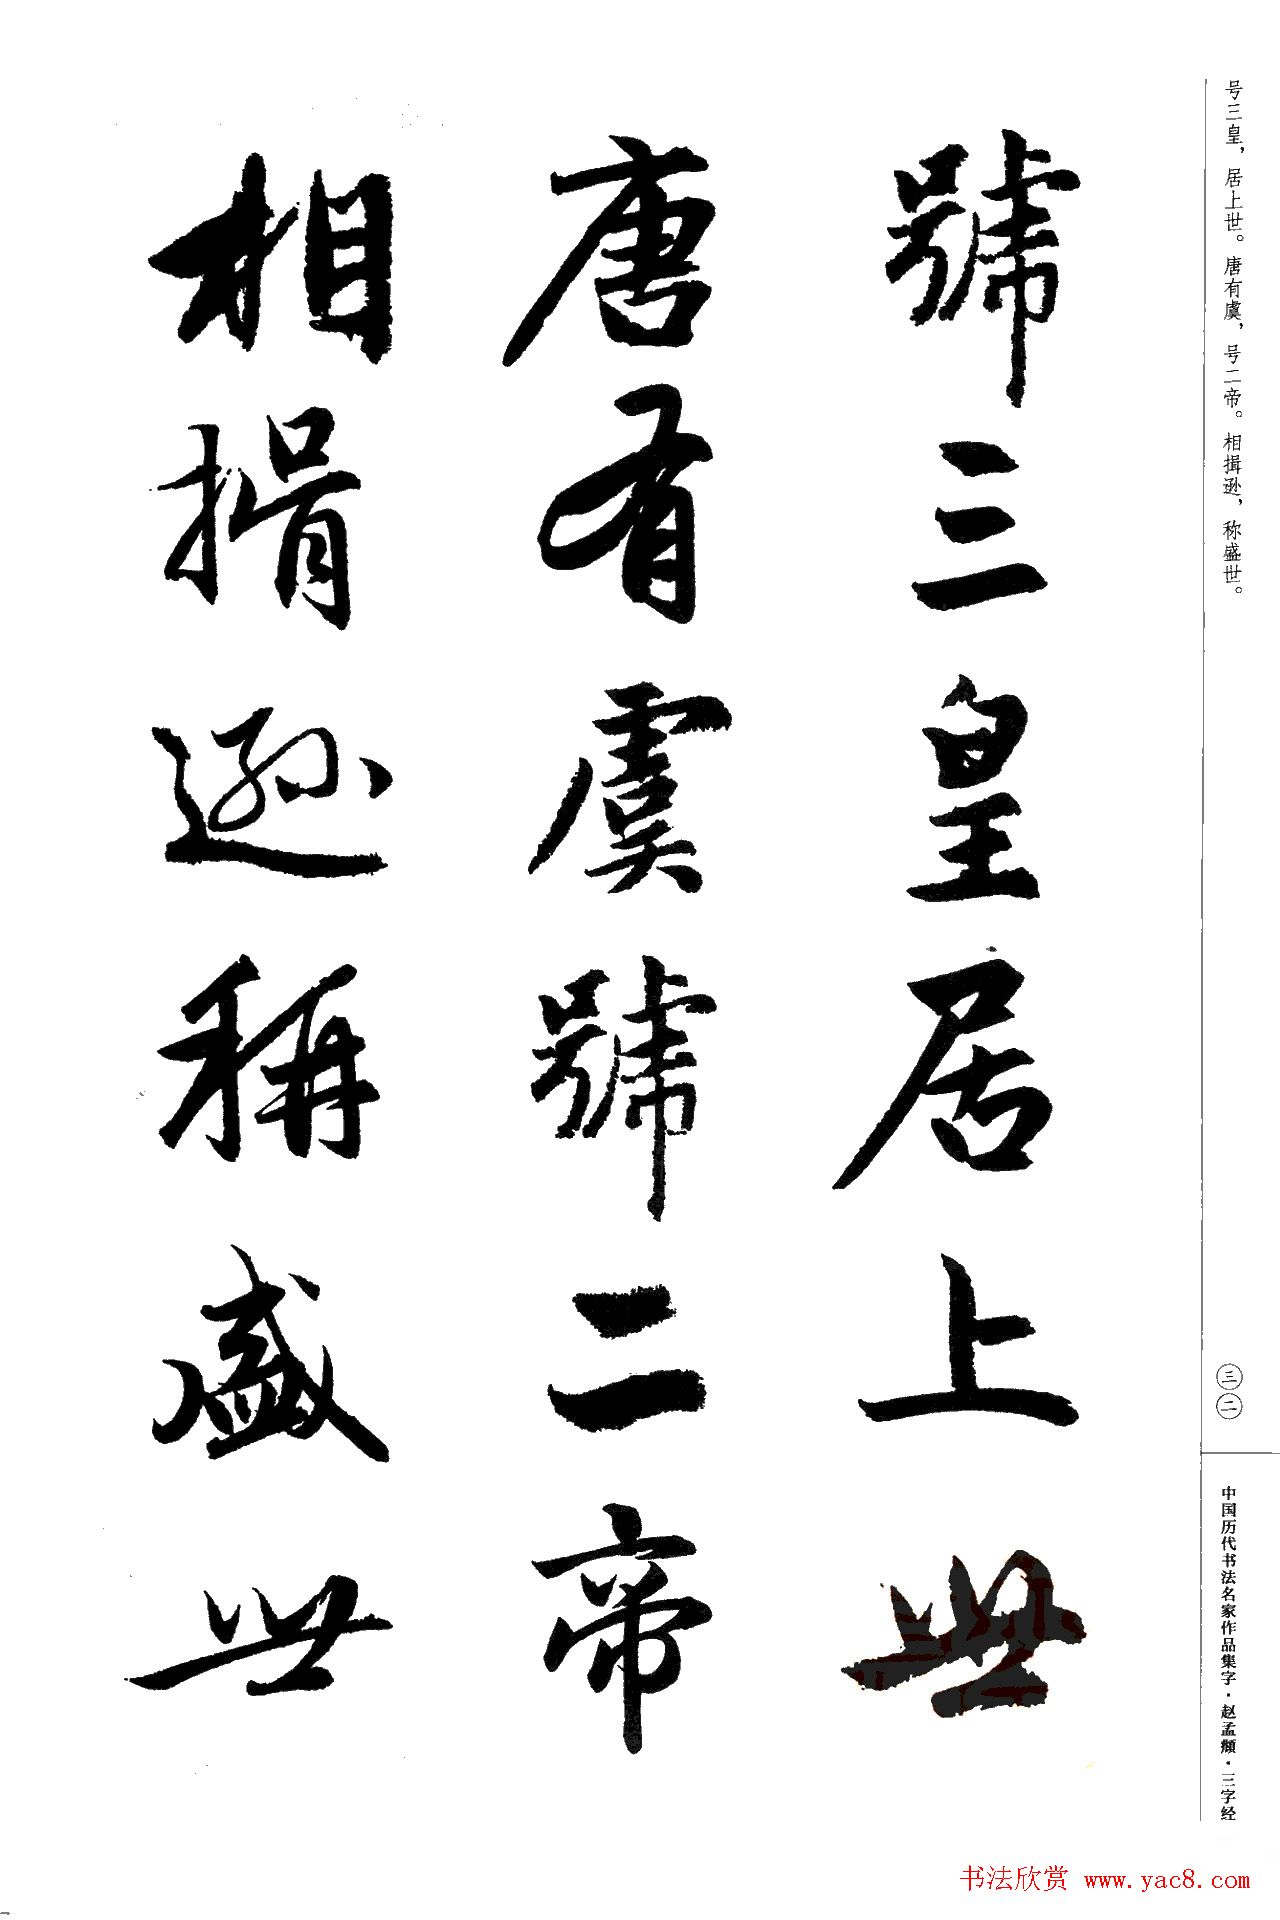 号三皇，居上世。唐有虞，号二帝。相揖逊，称盛世。
號三皇居上世
唐有虞號二帝
相揖遜稱盛世
三二
中国历代书法名家作品集字·赵孟頫·三字经
书法欣赏 www.yac8.com